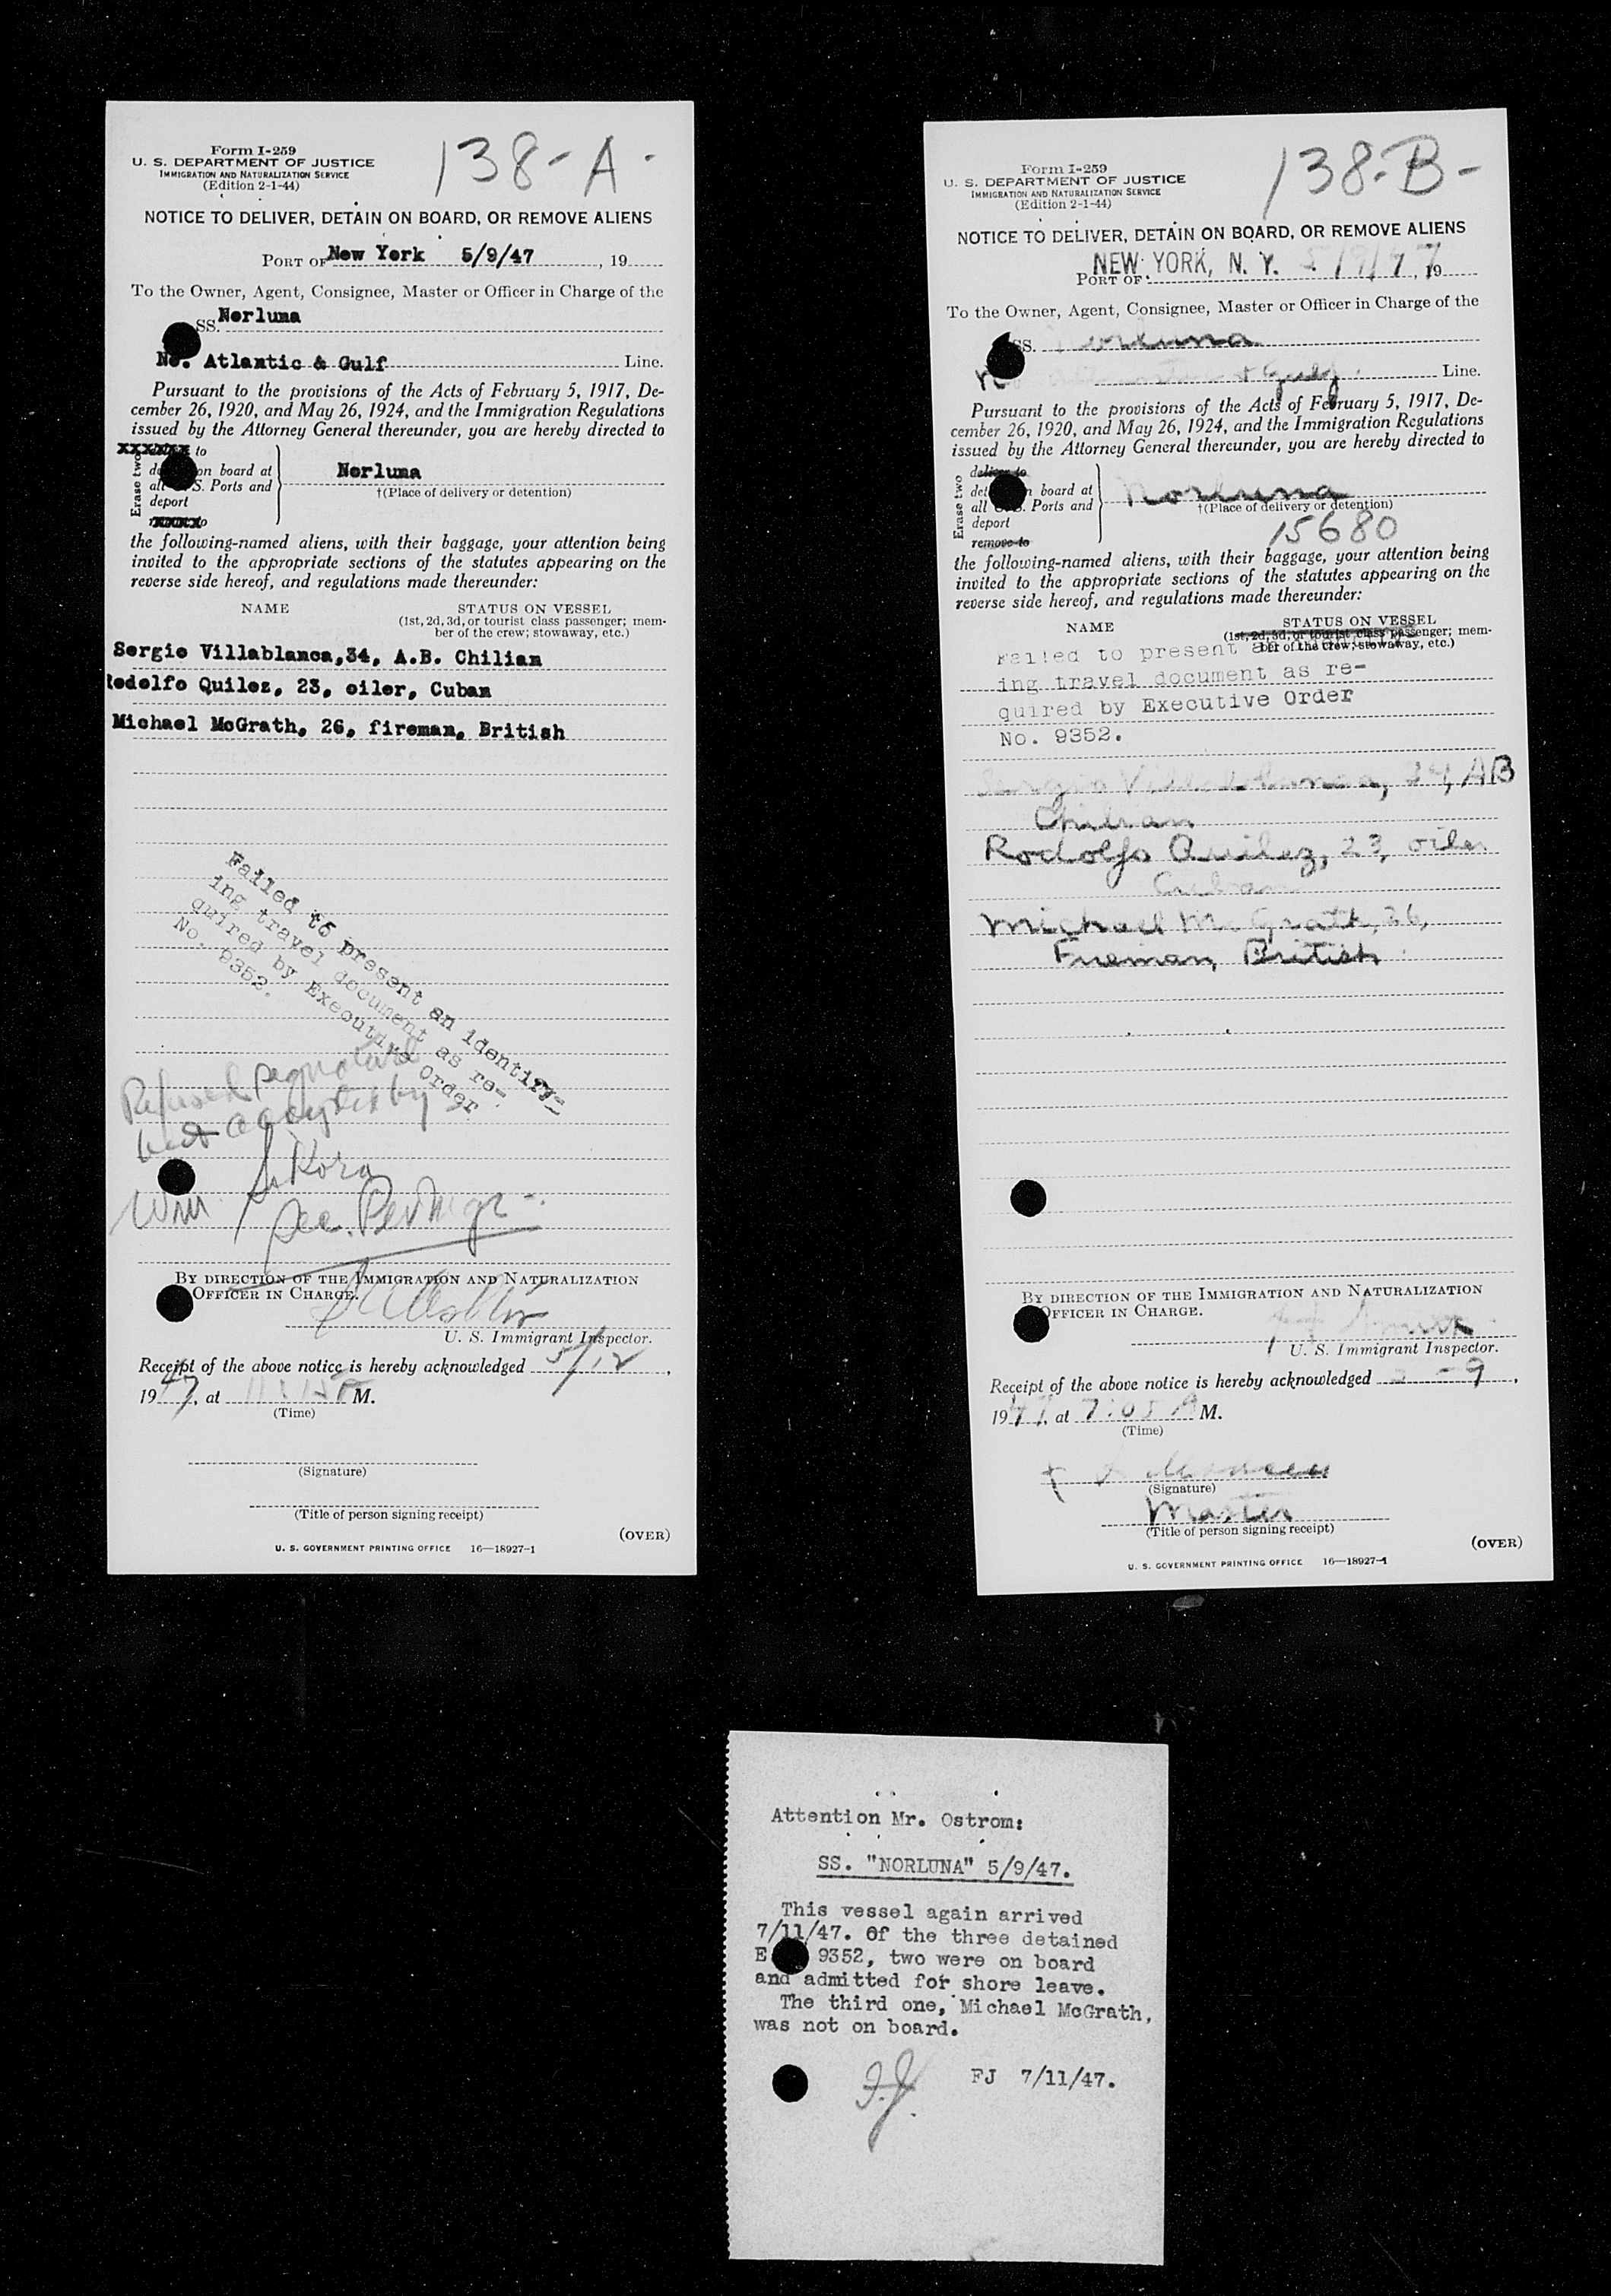 Form I-259
U. S. DEPARTMENT OF JUSTICE
IMMIGRATION AND NATURALIZATION SERVICE
(Edition 2-1-44)
138-A-
NOTICE TO DELIVER, DETAIN ON BOARD, OR REMOVE ALIENS
PORT OF New York 5/9/47, 19
To the Owner, Agent, Consignee, Master or Officer in Charge of the
SS. Norluna
No. Atlantic & Gulf Line.
Pursuant to the provisions of the Acts of February 5, 1917, De-
cember 26, 1920, and May 26, 1924, and the Immigration Regulations
issued by the Attorney General thereunder, you are hereby directed to
Erase two
xxxxxxx to
on board at
S. Ports and
deport
xxxxx to
Norluna
†(Place of delivery or detention)
the following-named aliens, with their baggage, your attention being
invited to the appropriate sections of the statutes appearing on the
reverse side hereof, and regulations made thereunder:
NAME STATUS ON VESSEL
(1st, 2d, 3d, or tourist class passenger; mem-
ber of the crew; stowaway, etc.)
Sergio Villablanca,34, A.B. Chilian
Rodolfo Quilez, 23, oiler, Cuban
Michael McGrath, 26, fireman, British
Failed to present an identify-
ing travel document as re-
quired by Executive Order
No. 9352.
Refused signature
but accepted by
Wm. Sikora
BY DIRECTION OF THE IMMIGRATION AND NATURALIZATION
OFFICER IN CHARGE.
U. S. Immigrant Inspector.
Receipt of the above notice is hereby acknowledged 5/12,
1947, at M.
(Time)
(Signature)
(Title of person signing receipt)
(OVER)
U. S. GOVERNMENT PRINTING OFFICE 16—18927-1
Form I-259
U. S. DEPARTMENT OF JUSTICE
IMMIGRATION AND NATURALIZATION SERVICE
(Edition 2-1-44)
138-B-
NOTICE TO DELIVER, DETAIN ON BOARD, OR REMOVE ALIENS
PORT OF NEW YORK, N. Y. 5/9/47, 19
To the Owner, Agent, Consignee, Master or Officer in Charge of the
SS. Norluna
No Atlantic & Gulf. Line.
Pursuant to the provisions of the Acts of February 5, 1917, De-
cember 26, 1920, and May 26, 1924, and the Immigration Regulations
issued by the Attorney General thereunder, you are hereby directed to
Erase two
deliver to
board at
all Ports and
deport
remove to
Norluna
†(Place of delivery or detention)
15680
the following-named aliens, with their baggage, your attention being
invited to the appropriate sections of the statutes appearing on the
reverse side hereof, and regulations made thereunder:
NAME STATUS ON VESSEL
(1st, 2d, 3d, or tourist class passenger; mem-
ber of the crew; stowaway, etc.)
Failed to present
ing travel document as re-
quired by Executive Order
No. 9352.
Sergio Villablanca, 34, AB
Chilian
Rodolfo Quilez, 23, oiler
Cuban
Michael McGrath, 26,
Fireman, British
BY DIRECTION OF THE IMMIGRATION AND NATURALIZATION
OFFICER IN CHARGE.
U. S. Immigrant Inspector.
Receipt of the above notice is hereby acknowledged - 9,
1947, at 7:05 A M.
(Time)
(Signature)
Master
(Title of person signing receipt)
(OVER)
U. S. GOVERNMENT PRINTING OFFICE 16—18927-1
Attention Mr. Ostrom:
SS. "NORLUNA" 5/9/47.
This vessel again arrived
7/11/47. Of the three detained
E 9352, two were on board
and admitted for shore leave.
The third one, Michael McGrath,
was not on board.
F.J. FJ 7/11/47.